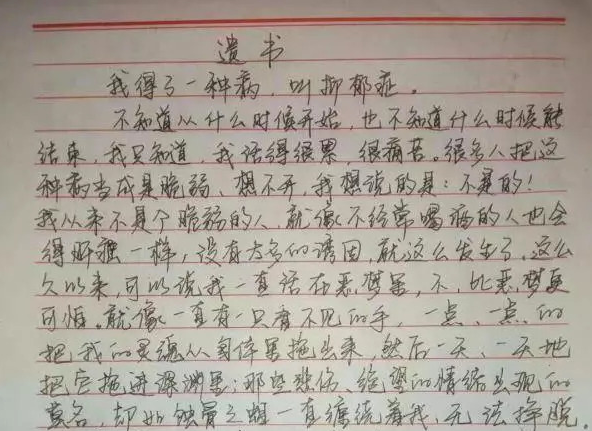 遗书
我得了一种病，叫抑郁症。
不知道从什么时候开始，也不知道什么时候能
结束，我只知道，我活得很累，很痛苦。很多人把这
种病当成是脆弱、想不开，我想说的是：不是的！
我从来不是个脆弱的人，就像不经常喝酒的人也会
得肝癌一样，没有太多的诱因，就这么发生了。这么
久以来，可以说我一直活在恶梦里，不，比恶梦更
可怕。就像一直有一只看不见的手，一点、一点的
把我的灵魂从身体里拖出来，然后一天、一天地
把它拖进深渊里；那些悲伤、绝望的情绪出现的
莫名，却如蚀骨之蛆一直缠绕着我，无法挣脱。